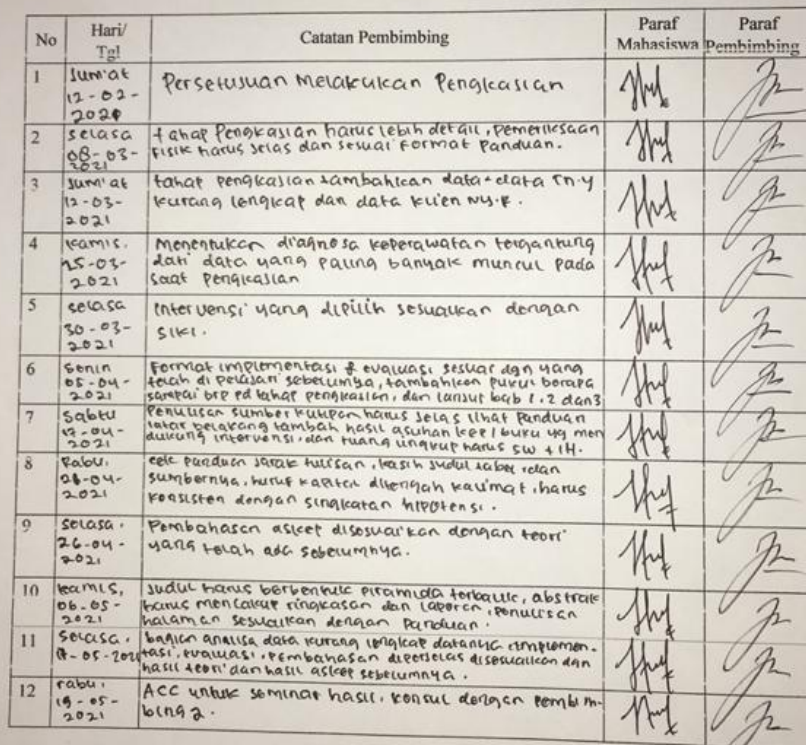 No Hari/ Tgl Catatan Pembimbing Paraf Mahasiswa Paraf Pembimbing
1 Jum'at Persetujuan Melakukan Pengkajian
12-02-
2021
2 Selasa tahap Pengkajian harus lebih detail, pemeriksaan
08-03- Fisik harus jelas dan sesuai Format Panduan.
2021
3 Jum'at tahap pengkajian tambahkan data-data Tn.y
12-03- kurang lengkap dan data klien Ny.F.
2021
4 kamis, Menentukan diagnosa keperawatan tergantung
25-03- dari data yang paling banyak muncul pada
2021 saat pengkajian
5 selasa intervensi yang dipilih sesuaikan dengan
30-03- SIKI.
2021
6 Senin Format implementasi & evaluasi sesuai dgn yang
05-04- telah di pelajari sebelumnya, tambahkan pukul berapa
2021 sampai brp pd tahap pengkajian, dan lanjut bab 1,2 dan3
7 Sabtu Penulisan sumber kutipan harus jelas lihat Panduan
17-04- latar belakang tambah hasil asuhan kep / buku yg men
2021 dukung intervensi, dan ruang lingkup harus 5W + 1H.
8 Rabu, cek panduan jarak tulisan, kasih judul tabel dan
sumbernya, huruf kapital ditengah kalimat, harus
2021 konsisten dengan singkatan hipotensi.
9 selasa, Pembahasan askep disesuaikan dengan teori
26-04- yang telah ada sebelumnya.
2021
10 kamis, Judul harus berbentuk piramida terbalik, abstrak
06-05- harus mencakup ringkasan dari laporan, penulisan
2021 halaman sesuaikan dengan Panduan.
11 Selasa, bagian analisa data kurang lengkap datanya implemen-
-05-2021 tasi, evaluasi, pembahasan diperjelas disesuaikan dgn
hasil teori dan hasil askep sebelumnya.
12 rabu, ACC untuk seminar hasil, konsul dengan pembim-
19-05- bing 2.
2021